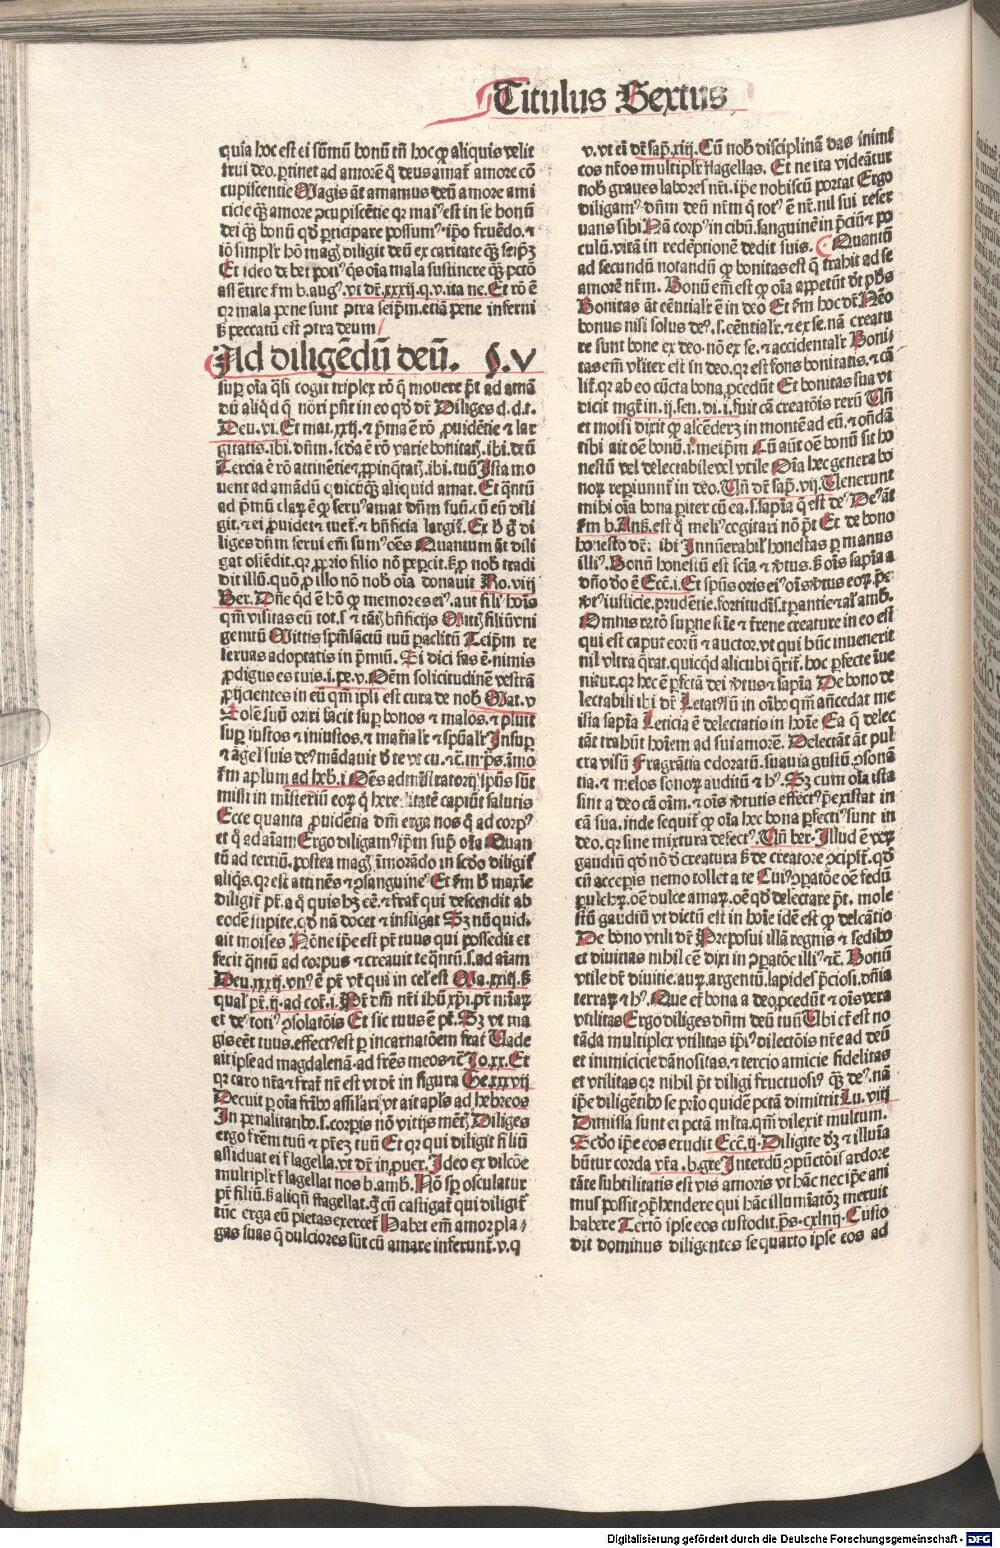 Titulus Sextus
quia hoc est ei sūmū bonū tñ hoc ꝙ aliquis velit
frui deo. ꝑtinet ad amorē q̄ deus amat̄ amore cō
cupiscentie Magis aūt amamus deū amore ami
cicie qʒ̄ amore ꝯcupiscētie qꝛ maiꝰ est in se bonū
dei qʒ̄ bonū qd̄ ꝑticipare possumꝰ ip̄o fruēdo. ⁊
iō simplr̄ hō mag̃ diligit deū ex caritate qʒ̄ seip̄ʒ
Et ideo debet potiꝰ q̄s oīa mala sustinere qʒ̄ pctō
assētire fm b. aug. vt dr̄. xxxij. q. v. ita ne. Et rō ē
qꝛ mala pene sunt ꝯtra seip̄m. etiā pene inferni
ß peccatū est ꝯtra deum
Ad diligēdū deū. §. V
suꝑ oīa q̄si cogit triplex rō q̄ mouere pt̄ ad amā
dū aliqd̄ q̄ nōri pn̄t in eo qd̄ dr̄ Diliges d. d. t.
Deu. vi. Et mat. xxij. ⁊ pͥma ē rō ꝓuidētie ⁊ lar
gitatis. ibi. dn̄m. scd̄a ē rō varie bonitatꝭ. ibi. deū
Tercia ē rō attinētie ⁊ ꝓpinq̄tatꝭ. ibi. tuū Ista mo
uent ad amādū quicūqʒ aliquid amat. Et q̄ntū
ad pͥmū claꝝ ē ꝙ seruꝰ amat dn̄m suū. cū eū dili
git. ⁊ ei ꝓuidet ⁊ tuet̄. ⁊ bn̄ficia largit̄. Ex h̄ g̊ di
liges dn̄m serui em̄ sumꝰ oēs Quantum āt dili
gat ostēdit. qꝛ ꝓprio filio nō peꝑcit. ß ꝓ nob̄ tradi
dit illū. quō ꝓ illo nō nob̄ oīa donauit Ro. viij
Ber. Dn̄e qd̄ ē hō ꝙ memores eiꝰ. aut fili hoīs
qm̄ visitas eū tot. s̄ ⁊ tātꝭ bn̄ficijs Mittꝭ filiū vni
genitū Mittis spm̄ sāctū tuū ꝑaclitū Teip̄m re
seruas adoptatis in pͥmiū. Si dici fas ē. nimis
ꝓdigus es tuis. i. pe. v. Oēm solicitudinē vestrā
ꝓijcientes in eū qm̄ ip̄i est cura de nob̄ Mat. v
Solē suū oriri facit suꝑ bonos ⁊ malos. ⁊ pluit
suꝑ iustos ⁊ iniustos. ⁊ mat̄ialr̄ ⁊ spūalr̄ Insuꝑ
⁊ āgel suis deꝰ mādauit ð te vt cu. ⁊c̄. in ps̄. īmo
fm apl̄um ad heb. i. Oēs admīstratorij sp̄us sūt
missi in mīsteriū eoꝝ q̄ hereditatē capiūt salutis
Ecce quanta ꝓuidētia dn̄i erga nos q̄ ad corpꝰ
et q̄ ad aīam Ergo diligamꝰ ip̄m suꝑ oīa Quan
tū ad tertiū. postea mag̃ īmorādo in scd̄o diligit̄
aliq̄s. qꝛ est attinēs ⁊ ꝯsanguineꝰ Et fm h̄ maxie
diligit̄ pr̄. a q̄ quis hʒ eē. ⁊ frat̄ qui descendit ab
eodē stipite. qd̄ nā docet ⁊ instigat Sʒ nūquid.
ait moises Nōne ip̄e est pr̄ tuus qui possedit et
fecit q̄ntū ad corpus ⁊ creauit te q̄ntū. s. ad aīam
Deu. xxxij. vnꝰ ē pr̄ vr̄ qui in cel̄ est Ma. xxiij. ß
qual̄ pr̄. ij. ad cor̄. i. Pr̄ dn̄i nr̄i ihū xp̄i. pr̄ mīaꝝ
et deꝰ totiꝰ ꝯsolatōis Et sic tuus ē pr̄. Sʒ vt ma
gis eēt tuus. effectꝰ est ꝑ incarnatōem frat̄ Uade
ait ipse ad magdalenā. ad fr̄es meos ⁊c̄ Jo. xx. Et
qꝛ caro nr̄a ⁊ frat̄ nr̄ est vt dr̄ in figura Ge. xxxvij
Decuit ꝑ oīa fr̄ibꝰ assilari vt ait apl̄s ad hebreos
In penalitatibꝰ. s. corꝑis nō vitijs mētꝭ Diliges
ergo fr̄em tuū ⁊ pr̄eʒ tuū Et qꝛ qui diligit filiū
assiduat ei flagella. vt dr̄ in ꝓuer. Ideo ex dilcōe
multiplr̄ flagellat nos b. amb. Nō sꝑ osculatur
pr̄ filiū. ß aliqn̄ flagellat. g̊ cū castigat̄ qui diligit̄
tūc erga eū pietas exercet̄ Habet em̄ amor pla
gas suas q̄ dulciores sūt cū amare inferunt̄. v. q
v. vt ei dr̄ sap̄. xiij. Cū nob̄ disciplinā das inimi
cos nr̄os multiplr̄ flagellas. Et ne ita videātur
nob̄ graues labores nr̄i. ip̄e nobiscū portat Ergo
diligamꝰ dn̄m deū nr̄m q̄ totꝰ ē nr̄. nil sui reser
uans sibi Nā corpꝰ in cibū. sanguinē in pͥciū ⁊ po
culū. vitā in redēptionē dedit suis. Quantū
ad secundū notandū ꝙ bonitas est q̄ trahit ad se
amorē nr̄m. Bonū em̄ est ꝙ oīa appetūt dr̄ phs̄
Bonitas āt eēntialr̄ ē in deo Et fm hoc dr̄ Nēo
bonus nisi solus deꝰ. s. cēntialr̄. ⁊ ex se. nā creatu
re sunt bone ex deo. nō ex se. ⁊ accidentalr̄ Boni
tas em̄ vl̄iter est in deo. qꝛ est fons bonitatis. ⁊ cā
lit̄. qꝛ ab eo cūcta bona ꝓcedūt Et bonitas sua vt
dicit mgr̄ in. ij. sen. di. i. fuit cā creatōis rerū Uñ
et moisi dixit ꝙ alcēderʒ in montē ad eū. ⁊ ondā
tibi ait oē bonū. i. meip̄m Cū aūt oē bonū sit ho
nestū vel delectabile vel vtile Oīa hec genera bo
noꝝ reperiunt̄ in deo. Uñ dr̄ sap̄. vij. Uenerunt
mihi oīa bona pariter cū ea. s. sapīa q̄ est deꝰ Deꝰ āt
fm b. Ans. est q̄ meliꝰ cogitari nō pt̄ Et de bono
honesto dr̄ ibi Innūerabil̄ honestas ꝑ manus
illiꝰ. Bonū honestū est scīa ⁊ ꝟtus. ß oīs sapīa a
dn̄o deo ē Ecc̄. i. Et spūs oris eiꝰ oīs ꝟtus eoꝝ. ps̄.
ꝟtꝰ iusticie. prudētie. fortitudīs. tꝑantie ⁊ al̄ amb.
Omnis rato superne scie ⁊ frene creature in eo est
qui est caput eorū ⁊ auctor. vt qui hūc inuenerit
nil vltra q̄rat. quicqd̄ alicubi q̄rit̄. hoc ꝑfecte īue
nitur. qꝛ hec ē ꝑfctā dei ꝟtus ⁊ sapīa De bono de
lectabili ibi dr̄ Letatꝰ sū in oībꝰ qm̄ añcedat me
ista sapīa Leticia ē delectatio in hoīe Ea q̄ delec
tāt trahūt hoīem ad sui amorē. Delectāt āt pul
cra visū Fragrātia odoratū. suauia gustū. ꝯsona
tia. ⁊ melos sonoꝝ auditū ⁊ hꝰ. Sʒ cum oīa ista
sint a deo cā oīm. ⁊ oīs ꝟtutis effectꝰ p̄existat in
cā sua. inde sequit̄ ꝙ oīa hec bona ꝑfectiꝰ sunt in
deo. qꝛ sine mixtura defectꝰ. Uñ ber. Illud ē veꝝ
gaudiū qd̄ nō ð creatura ß de creatore ꝯcipit̄. qd̄
cū acceperis nemo tollet a te Cui ꝯpatōe oē fedū
pulchꝝ. oē dulce amaꝝ. oē qd̄ delectare pt̄. mole
stū gaudiū vt dictū est in hoīe idē est ꝙ delcātio
De bono vtili dr̄ Preposui illā regnis ⁊ sedibꝰ
et diuinas nihil cē dixi in ꝯpatōe illiꝰ ⁊c̄. Bonū
vtile dr̄ diuitie. auꝝ. argentū. lapides p̄ciosi. dn̄ia
terraꝝ ⁊ hꝰ. Que cr̄ bona a deo ꝓcedūt ⁊ oīs vera
vtilitas Ergo diliges dn̄m deū tuū Ubi cr̄ est no
tāda multiplex vtilitas ip̄iꝰ dilectōis nr̄e ad deū
et inimicicie dānositas. ⁊ tercio amicie fidelitas
et vtilitas qꝛ nihil pt̄ diligi fructuosiꝰ qʒ̄ deꝰ. nā
ip̄e diligētibꝰ se prīo quidē pctā dimittit Lu. viij
Dimissa sunt ei pctā ml̄ta. qm̄ dilexit multum.
Scd̄o ip̄e eos erudit Ecc̄. ij. Diligite dʒ̄ ⁊ illuīa
būtur corda vr̄a. b. gre Interdū ꝯpūctōis ardore
tāte subtilitatis est vis amoris vt hāc nec ip̄e ani
mus possit ꝯp̄hendere qui hāc illumiatōʒ meruit
habere Tertō ipse eos custodit. ps̄. cxliiij. Custo
dit dominus diligentes se quarto ipse eos ad
Digitalisierung gefördert durch die Deutsche Forschungsgemeinschaft - DFG